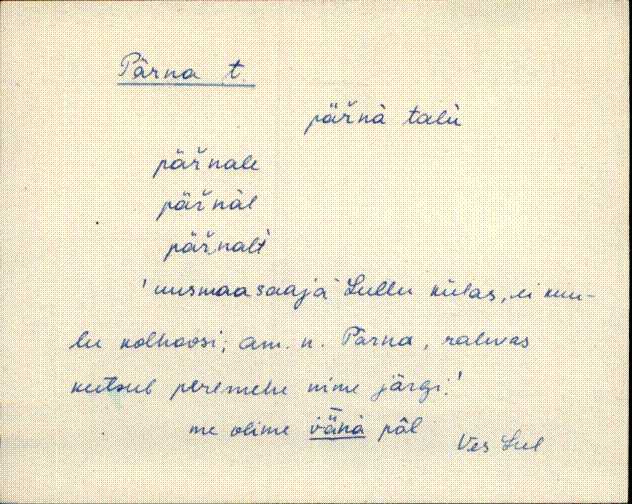 Pärna t.
pär̆nà talù
pär̆nale
pär̆nàl
pär̆nalt
'uusmaasaaja Lullu külas, ei kuu-
lu kolhoosi; am. n. Pärna, rahvas
kutsub peremehe nime järgi.'
me olime vǟnà päl
Ves Lul